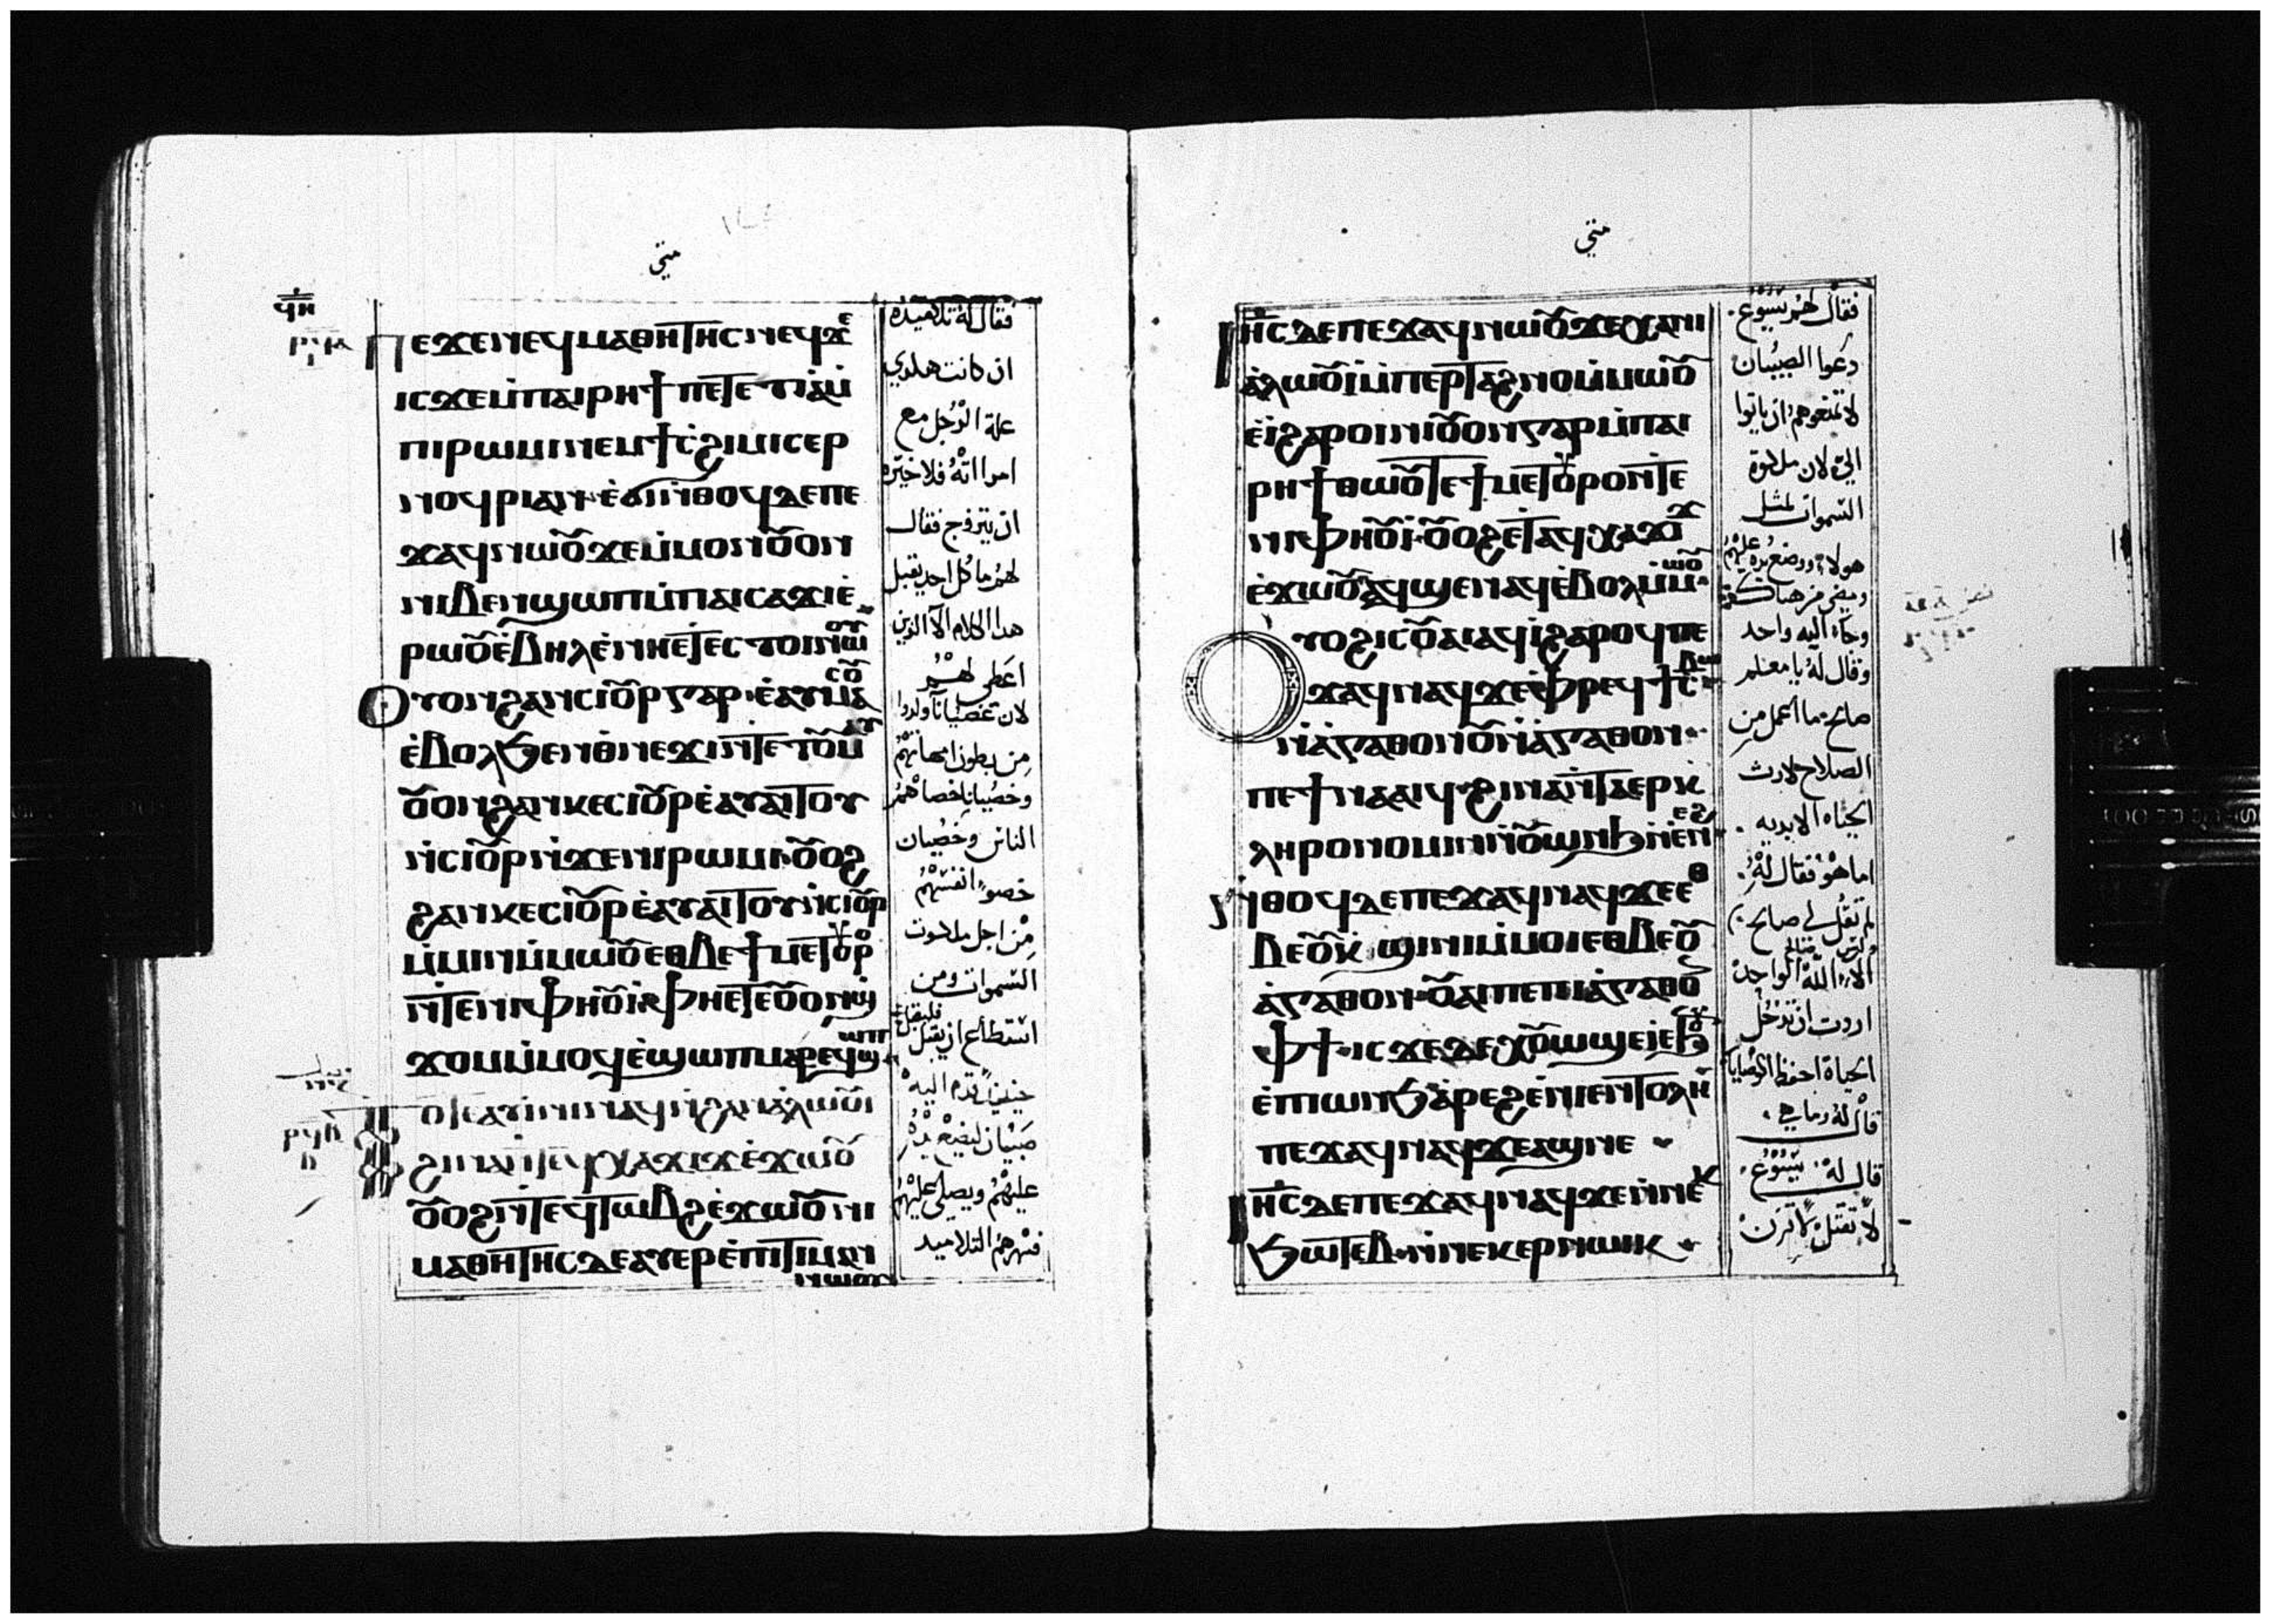 متى
ⲡⲉϫⲉⲛⲉϥⲙⲁⲑⲏⲧⲏⲥⲛⲁϥϫⲉ
ⲓⲥϫⲉⲙ̀ⲡⲁⲓⲣⲏϯⲡⲉⲧⲉⲧⲓⲁⲙ̀
ⲡⲓⲣⲱⲙⲓⲛⲉⲙϯⲥ̀ϩⲓⲙⲓⲥⲉⲣ
ⲛⲟϥⲣⲓⲁⲛ·ⲉ̀ϭⲓⲛ̀ⲑⲟϥⲇⲉⲡⲉ
ϫⲁϥⲛⲱⲟⲩϫⲉⲙ̀ⲙⲟⲛⲟⲩⲟⲛ
ⲛⲓⲃⲉⲛϣⲱⲡⲙ̀ⲡⲁⲓⲥⲁϫⲓⲉ̀
ⲣⲱⲟⲩⲉ̀ⲃⲏⲗⲉ̀ⲛⲏⲉⲧⲉⲥⲧⲟⲓⲛⲱⲟⲩ
ⲟⲩⲟⲛϩⲁⲛⲥⲓⲟⲩⲣⲅⲁⲣ·ⲉ̀ⲁⲩⲙⲁⲥⲟⲩ
ⲉ̀ⲃⲟⲗϧⲉⲛⲑ̀ⲛⲉϫⲓⲛ̀ⲧⲉⲧⲟⲩⲙⲁⲩ
ⲟⲩⲟⲛϩⲁⲛⲕⲉⲥⲓⲟⲩⲣⲉ̀ⲁⲩⲁⲓⲧⲟⲩ
ⲛ̀ⲥⲓⲟⲩⲣⲛ̀ϫⲉⲛⲓⲣⲱⲙⲓ·ⲟⲩⲟϩ
ϩⲁⲛⲕⲉⲥⲓⲟⲩⲣⲉ̀ⲁⲩⲁⲓⲧⲟⲩⲛ̀ⲥⲓⲟⲩⲣ
ⲙ̀ⲙⲓⲛⲙ̀ⲙⲱⲟⲩⲉⲑⲃⲉϯⲙⲉⲧⲟⲩⲣⲟ
ⲛ̀ⲧⲉⲛⲓⲫⲏⲟⲩⲓ̀ⲫⲏⲉⲧⲉⲟⲩⲟⲛϣ
ϫⲟⲙⲙ̀ⲙⲟϥⲉ̀ϣⲱⲡⲙⲁⲣⲉϥϣⲱⲡ
ⲧⲟⲧⲉⲁⲩⲓⲛⲓⲛⲁϥⲛ̀ϩⲁⲛⲁ̀ⲗⲱⲟⲩⲓ
ϩⲓⲛⲁⲛ̀ⲧⲉϥⲭⲁϫⲓϫⲉ̀ϫⲱⲟⲩ
ⲟⲩⲟϩⲛ̀ⲧⲉϥⲧⲱⲃϩⲉ̀ϫⲱⲟⲩⲛⲓ
ⲙⲁⲑⲏⲧⲏⲥⲇⲉⲁⲩⲉⲣⲉ̀ⲡⲓⲧⲓⲙⲁⲛ
ⲛⲱⲟⲩ
فقال له تلاميذه
ان كانت هلذي
علة الرجل مع
امراته فلا خيره
ان يتزوج فقال
لهم ما كل احد يقبل
هذا الكلام الا الذين
اعطى لهم
لان خصيانا ولدوا
من بطون امهاتهم
وخصيانا خصاهم
الناس وخصيان
خصوا انفسهم
من اجل ملكوت
السموات ومن
استطاع ان يقبل فليقبل
حينيذ قدم اليه
صبيان ليضع يده
عليهم ويصلي عليهم
فنهرهم التلاميد
متي
ⲓⲏⲥⲇⲉⲡⲉϫⲁϥⲛⲱⲟⲩϫⲉⲭⲁⲛⲓ
ⲁ̀ⲗⲱⲟⲩⲓ̀ⲙ̀ⲡⲉⲣⲧⲁϩⲛⲟⲙ̀ⲙⲱⲟⲩ
ⲉ̀ⲓ̀ϩⲁⲣⲟⲓⲛⲓⲟⲩⲟⲛⲅⲁⲣⲙ̀ⲡⲁⲓ
ⲣⲏϯⲑⲱⲟⲩⲧⲉϯⲙⲉⲧⲟⲩⲣⲟⲛ̀ⲧⲉ
ⲛⲓⲫⲏⲟⲩⲓ̀·ⲟⲩⲟϩⲉⲧⲁϥⲭⲁϫⲓϫ
ⲉ̀ϫⲱⲟⲩⲁϥϣⲉⲛⲁϥⲉ̀ⲃⲟⲗⲙ̀ⲙⲱⲟⲩ
ⲟⲩⲟϩⲓⲥⲟⲩⲁⲓⲁϥⲓ̀ϩⲁⲣⲟϥⲡⲉ
ϫⲁϥⲛⲁϥϫⲉⲫ̀ⲣⲉϥϯⲥ̀ⲃⲱ
ⲛ̀ⲁ̀ⲅⲁⲑⲟⲛⲟⲩⲛ̀ⲁ̀ⲅⲁⲑⲟⲛ·
ⲡⲉϯⲛⲁⲁⲓϥ·ϩⲓⲛⲁⲛ̀ⲧⲁⲉⲣⲕ̀
ⲗⲏⲣⲟⲛⲟⲙⲓⲛ̀ⲟⲩⲱⲛϧⲛ̀ⲉⲛⲉϩ
ⲛ̀ⲑⲟϥⲇⲉⲡⲉϫⲁϥⲛⲁϥϫⲉⲉⲑ
ⲃⲉⲟⲩⲕ̀ϣⲓⲛⲓⲙ̀ⲙⲟⲓⲉⲑⲃⲉⲟⲩ
ⲁ̀ⲅⲁⲑⲟⲛ·ⲟⲩⲁⲓⲡⲉⲡⲓⲁ̀ⲅⲁⲑⲟⲥ
ⲫϯ·ⲓⲥϫⲉⲇⲉⲭⲟⲩⲱϣⲉ̀ⲓ̀ⲉ̀ϧⲟⲩⲛ
ⲉ̀ⲡⲓⲱⲛϧⲁ̀ⲣⲉϩⲉ̀ⲛⲓⲉⲛⲧⲟⲗⲏ
ⲡⲉϫⲁϥⲛⲁϥϫⲉⲁϣⲛⲉ
ⲓⲏⲥⲇⲉⲡⲉϫⲁϥⲛⲁϥϫⲉⲛ̀ⲛⲉⲕ
ϧⲱⲧⲉⲃ·ⲛ̀ⲛⲉⲕⲉⲣⲛⲱⲓⲕ
فقال لهم يسوع
دعوا الصبيان
لا تمنعوهم ان ياتوا
الي لان ملكوة
السموات لمثل
هولاء ووضع يده عليهم
ومضى من هناك
وجاء اليه واحد
وقال له يا معلم
صالح ما اعمل من
الصلاح لارث
الحياه الابديه
اما هو فقال له
لم تقل لي صالح
الا الله الواحد
اردت ان تدخل
الحياة احفظ الوصايا
قال له وما هي
قال له يسوع
لا تقتل لا تزن